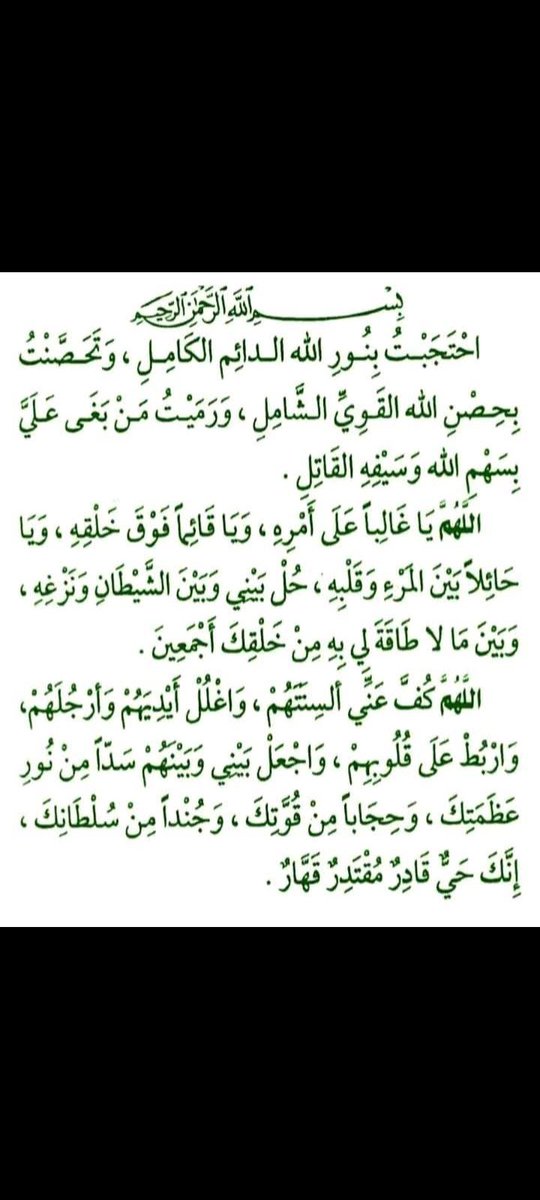 بِسْمِ اللَّهِ الرَّحْمَٰنِ الرَّحِيمِ
احْتَجَبْتُ بِنُورِ الله الدائِمِ الكَامِلِ ، وَتَحَصَّنْتُ
بِحِصْنِ الله القَوِيِّ الشَّامِلِ ، وَرَمَيْتُ مَنْ بَغَى عَلَيَّ
بِسَهْمِ الله وَسَيْفِهِ القَاتِلِ .
اللَّهُمَّ يَا غَالِباً عَلَى أَمْرِهِ ، وَيَا قَائِماً فَوْقَ خَلْقِهِ ، وَيَا
حَائِلاً بَيْنَ المَرْءِ وَقَلْبِهِ ، حُلْ بَيْنِي وَبَيْنَ الشَّيْطَانِ وَنَزْغِهِ ،
وَبَيْنَ مَا لا طَاقَةَ لِي بِهِ مِنْ خَلْقِكَ أَجْمَعِينَ .
اللَّهُمَّ كُفَّ عَنِّي ألسِنَتَهُمْ ، وَاغْلُلْ أَيْدِيَهُمْ وَأرْجُلَهُمْ،
وَارْبُطْ عَلَى قُلُوبِهِمْ ، وَاجْعَلْ بَيْنِي وَبَيْنَهُمْ سَدّاً مِنْ نُورِ
عَظَمَتِكَ ، وَحِجَاباً مِنْ قُوَّتِكَ ، وَجُنْداً مِنْ سُلْطَانِكَ ،
إِنَّكَ حَيٌّ قَادِرٌ مُقْتَدِرٌ قَهَّارٌ .